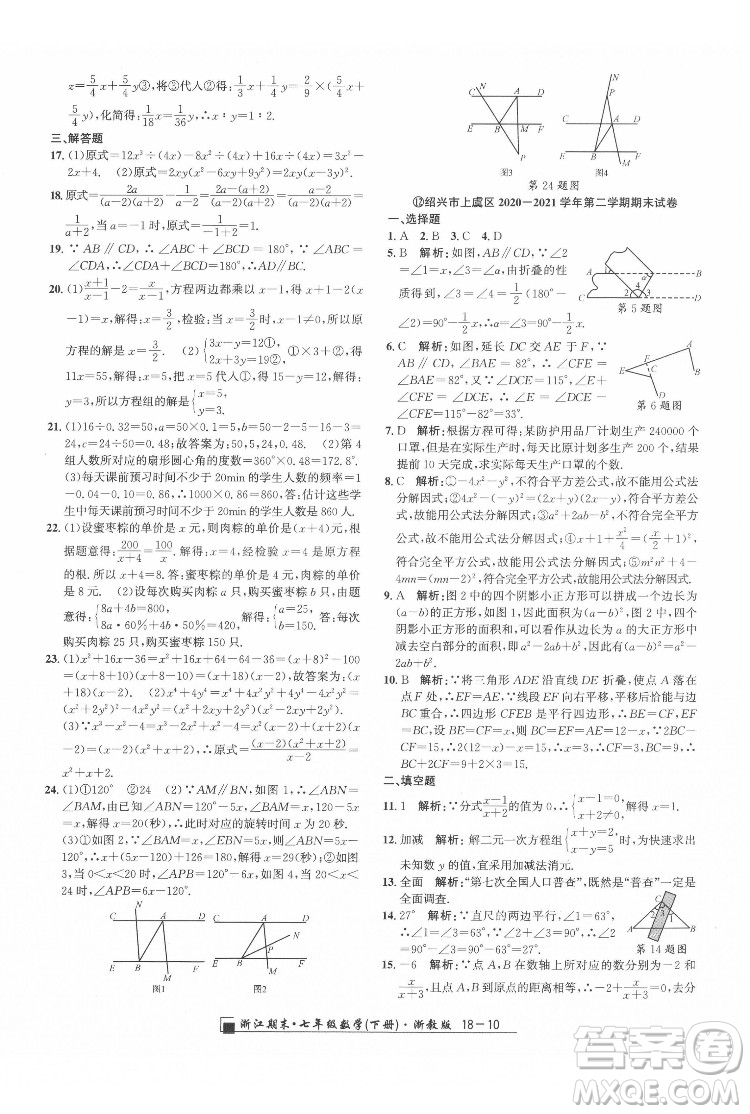 z=5/4x+5/4y③,将③代入②得:1/3x+1/4y=2/9×(5/4x+
5/4y),化简得:1/18x=1/36y,∴x∶y=1∶2.
三、解答题
17. (1)原式=12x³÷(4x)-8x²÷(4x)+16x÷(4x)=3x²-
2x+4. (2)原式=x²-1+2x-x²=2x-1.
18. 原式=2a/((a-2)(a+2))-(a+2)/((a-2)(a+2))=(a-2)/((a-2)(a+2))=
1/(a+2),当a=-1时,原式=1/(-1+2)=1.
19. ∵AB∥CD,∴∠ABC+∠BCD=180°.∵∠ABC=
∠CDA,∴∠CDA+∠BCD=180°,∴AD∥BC.
20. (1)(x+1)/(x-1)-2=x/(x-1),方程两边都乘以x-1,得:x+1-2(x
-1)=x,解得:x=3/2,检验:当x=3/2时,x-1≠0,所以原
方程的解是x=3/2. (2){3x-y=12①, 2x+3y=19②,①×3+②得:
11x=55,解得:x=5,把x=5代入①得:15-y=12,解得:y=
3,所以方程组的解为{x=5, y=3.
21. (1)16÷0.32=50,a=50×0.1=5,b=50-2-5-16-3=
24,c=24÷50=0.48;故答案为:50,5,0.48. (2)第4
组人数所对应的扇形圆心角的度数为360°×0.48=172.8°.
(3)每天课前预习时间不少于20min的学生人数的频率=
1-0.04-0.10=0.86,∴1000×0.86=860,答:估计这些学
生中每天课前预习时间不少于20min的学生人数是860人.
22. (1)设蜜枣粽的单价是x元,则肉粽的单价是(x+4)元,根
据题意得:200/x=600/(x+4),解得:x=4,经检验x=4是原方程
的根,∴x=4,x+4=8.答:蜜枣粽的单价是4元,肉粽的单
价是8元. (2)设每次购买肉粽a只,购买蜜枣粽b只,根
据题意得:{8a+4b=800, 8a·60%+4b·50%=420,解得:{a=25, b=150.答:每次
购买肉粽25只,购买蜜枣粽150只.
23. (1)x²+16x-36=x²+16x+64-64-36=(x+8)²-100=
(x+8+10)(x+8-10)=(x+18)(x-2);故答案为:(x-2)
(x+18). (2)x⁴+4=x⁴+4x²+4-4x²=(x²+2)²-4x²=
(x²+2+2x)(x²+2-2x)=(x²+2x+2)(x²-2x+2).
(3)∵x³-2x²-x+2=x²(x-2)-(x-2)=(x-2)(x²-1)=
(x-2)(x+1)(x-1),∴原式=
24. (1)①120° ②24 (2)∵AM∥BN,∴∠ABN=
∠BAM,由已知得:∠ABN=120°-5x,∠BAM=x,∴120°-
5x=x,解得:x=20(秒),∴此时对应的旋转时间为20秒.
(3)①如图2,当0<x≤20时,∵∠BAM=x,∠ABN=120°
-5x,∴∠APB=180°-x-(120°-5x)=60°+4x;②如图3,
当20<x<24时,∠APB=6x-120°;③如图4,当x>
24时,∠APB=6x-120°.
C A D
N
P
E B M F
图1
C A D
N
P
E B M F
图2
N
C A D
E B M F
P
图3
N
P
C A D
E B M F
图4
第24题图
⑫绍兴市上虞区2020—2021学年第二学期期末试卷
一、选择题
1. A 2. B 3. C 4. D
5. B 解析:如图,AB∥CD,∴∠2
=∠1=∠α,由折叠的性
质得到,∠3=∠4=1/2(180°-
∠2)=90°-1/2∠α,∴∠α=∠3=90°-1/2∠α.
A B
C D
第5题图
6. C 解析:如图,延长DC交AE于F,∵
AB∥CD,∠BAE=82°,∴∠CFE=
∠BAE=82°,∵∠DCE=115°,∠E+
∠CFE=∠DCE,∴∠E=∠DCE-
∠CFE=115°-82°=33°.
第6题图
7. D 解析:根据方程可得:某防护用品厂计划生产240000个
口罩,但是在实际生产时,每天比原计划多生产500个,因此
提前10天完成任务,求实际每天生产口罩的个数.
8. C 解析:①-4x²-y²,不符合平方差公式,故不能用公式法
分解因式;②4x²-(-y)²=4x²-y²,符合平方差公式,故能
用公式法分解因式;③a²+2ab-b²,不符合完全平方公式,
故不能用公式法分解因式;④x+1+x²/4=(x/2+1)²,
符合完全平方公式,故能用公式法分解因式;⑤m²n²+4-
4mn=(mn-2)²,符合完全平方公式,故能用公式法分解因式.
9. A 解析:图2中的四个阴影小正方形可以拼成一个边长为
(a-2b)的正方形,面积为(a-2b)²;图2中阴影面积为四个
阴影小正方形的面积和,可以看从边长为a的大正方形中
减去空白部分的面积,即a²-2ab×2+(2b)²;∴(a-2b)²=
10. B 解析:∵将三角形ADE沿直线DE折叠,使点A落在
点F处,∴EF=AE=5,∵平移后恰能与边
BC重合,∴四边形CFEB是平行四边形,∴BC=EF,EF
=BC=5,
二、填空题
11. 1 解析:∵分式(x-1)/(x+1)的值为0,∴{x-1=0, x+1≠0,解得:x=1.
12. 加减 解析:解二元一次方程组{x+y=2, x-y=6时,由①+②得到
未知数y,用到的是加减消元法.
13. 全面 解析:“第七次全国人口普查”,这里的“普查”一定是
全面调查.
14. 27° 解析:∵直尺的两边平行,∠1=63°,
∴∠1=∠3=63°,∴∠2=90°-∠3=90°-
63°=27°.
A B
第14题图
15. -6 解析:∵点A,B在数轴上所对应的数分别为-2和
浙江期末·七年级数学(下册)·浙教版 18-10
答案圈
MXQE.COM